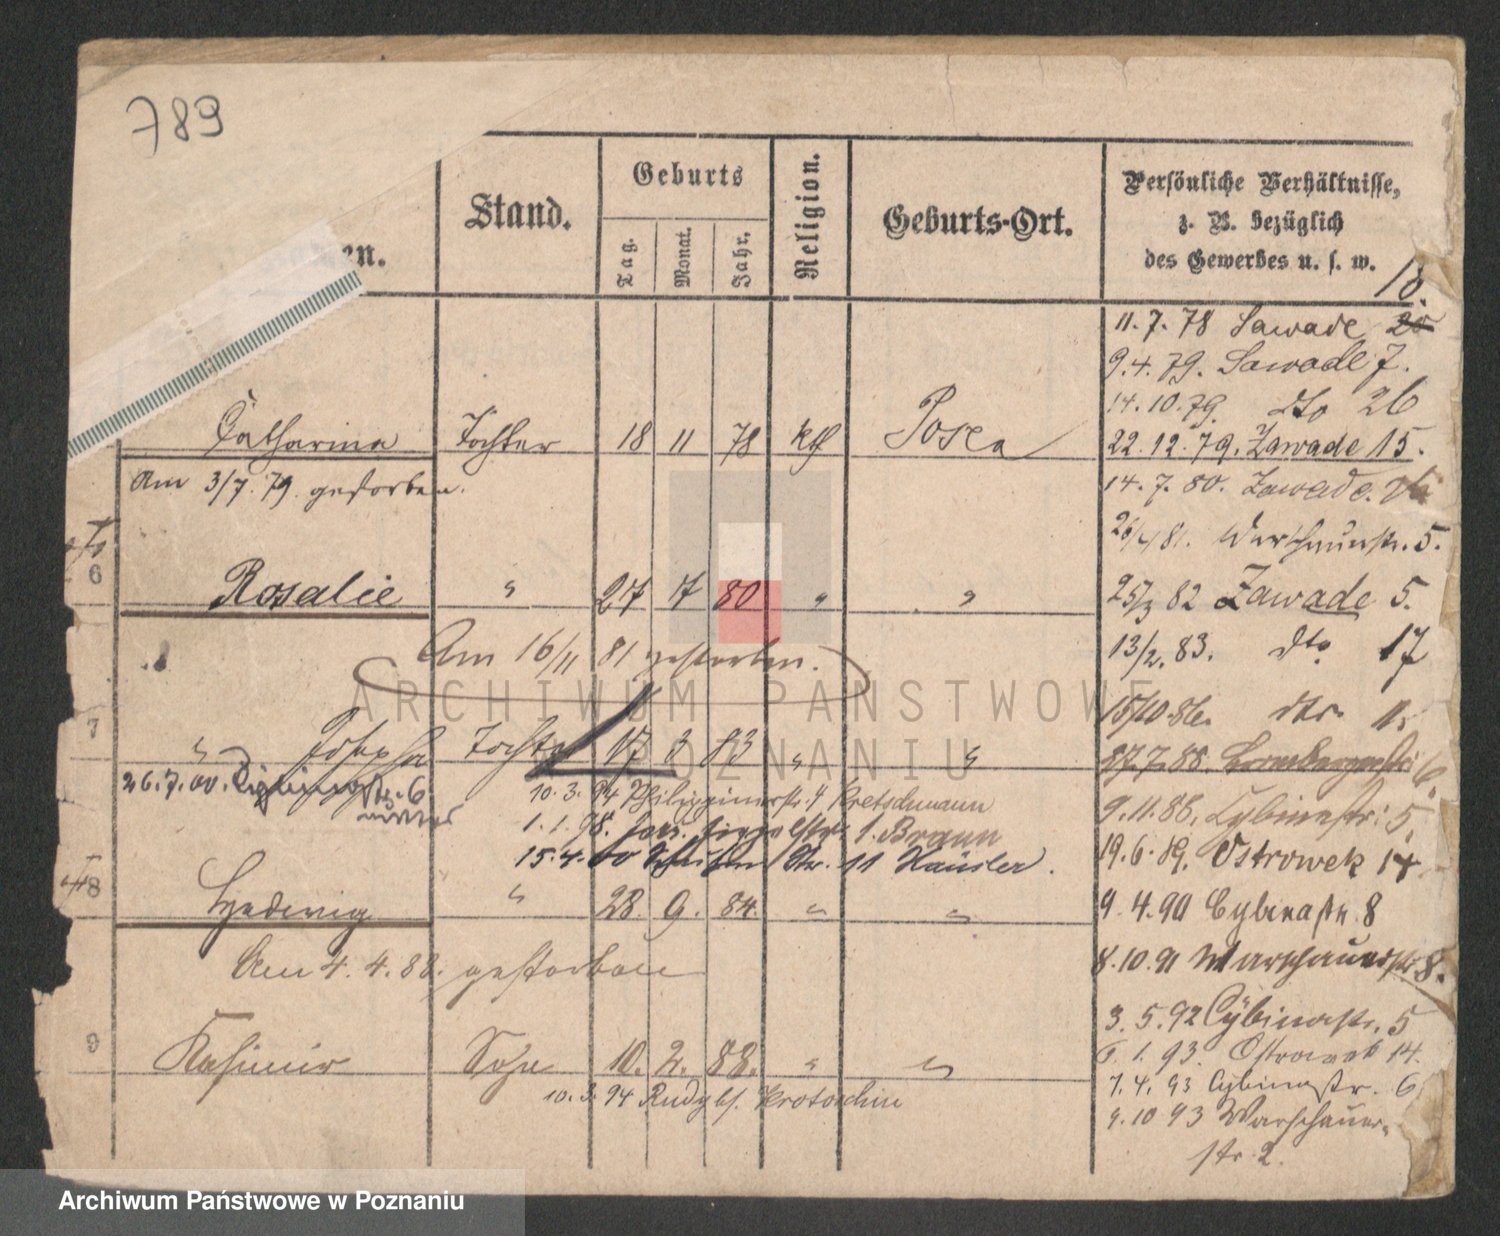 789
Stand.
Geburts
Tag.
Monat.
Jahr.
Religion.
Geburts-Ort.
Persönliche Verhältnisse,
z. B. bezüglich
des Gewerbes u. s. w.
en.
18.
11.7.78 Zawade 25
9.4.79. Zawade 7.
14.10.79. dto 26
Catharina Tochter 18 11 78 kth Posen
22.12.79. Zawade 15.
Am 3/7. 79. gestorben.
14.7.80. Zawade.
81. Warschauerstr. 5.
6 Rosalie " 27 7 80 " "
25/3 82 Zawade 5.
Am 16/11 81 gestorben.
13/2. 83. dto 17
15/10 86. dto
7 " Josepha Tochter 17 3 83 " "
27.7.88. Brombergerstr. 6
26.7.00. Cybinastr. 6
10.3.94 Philippinerstr. 4 Kretschmann
9.11.88. Cybinastr. 5.
1.1.98. 1. Braun
15.4.00 Str. 11 Häusler.
19.6.89. Ostrowek 14
8 Hedwig " 28. 9. 84. " "
9.4.90 Cybinastr. 8
Am 4.4.88. gestorben
8.10.91 Warschauerstr 8.
3.5.92 Cybinastr. 5
9 Kasimir Sohn 10. 2. 88. " "
1.93. Ostrowek 14.
10.3.94 Krotoschin
1.4.93 Cybinastr. 6
9.10 93 Warschauer-
str. 2.
ARCHIWUM PAŃSTWOWE
W POZNANIU
Archiwum Państwowe w Poznaniu